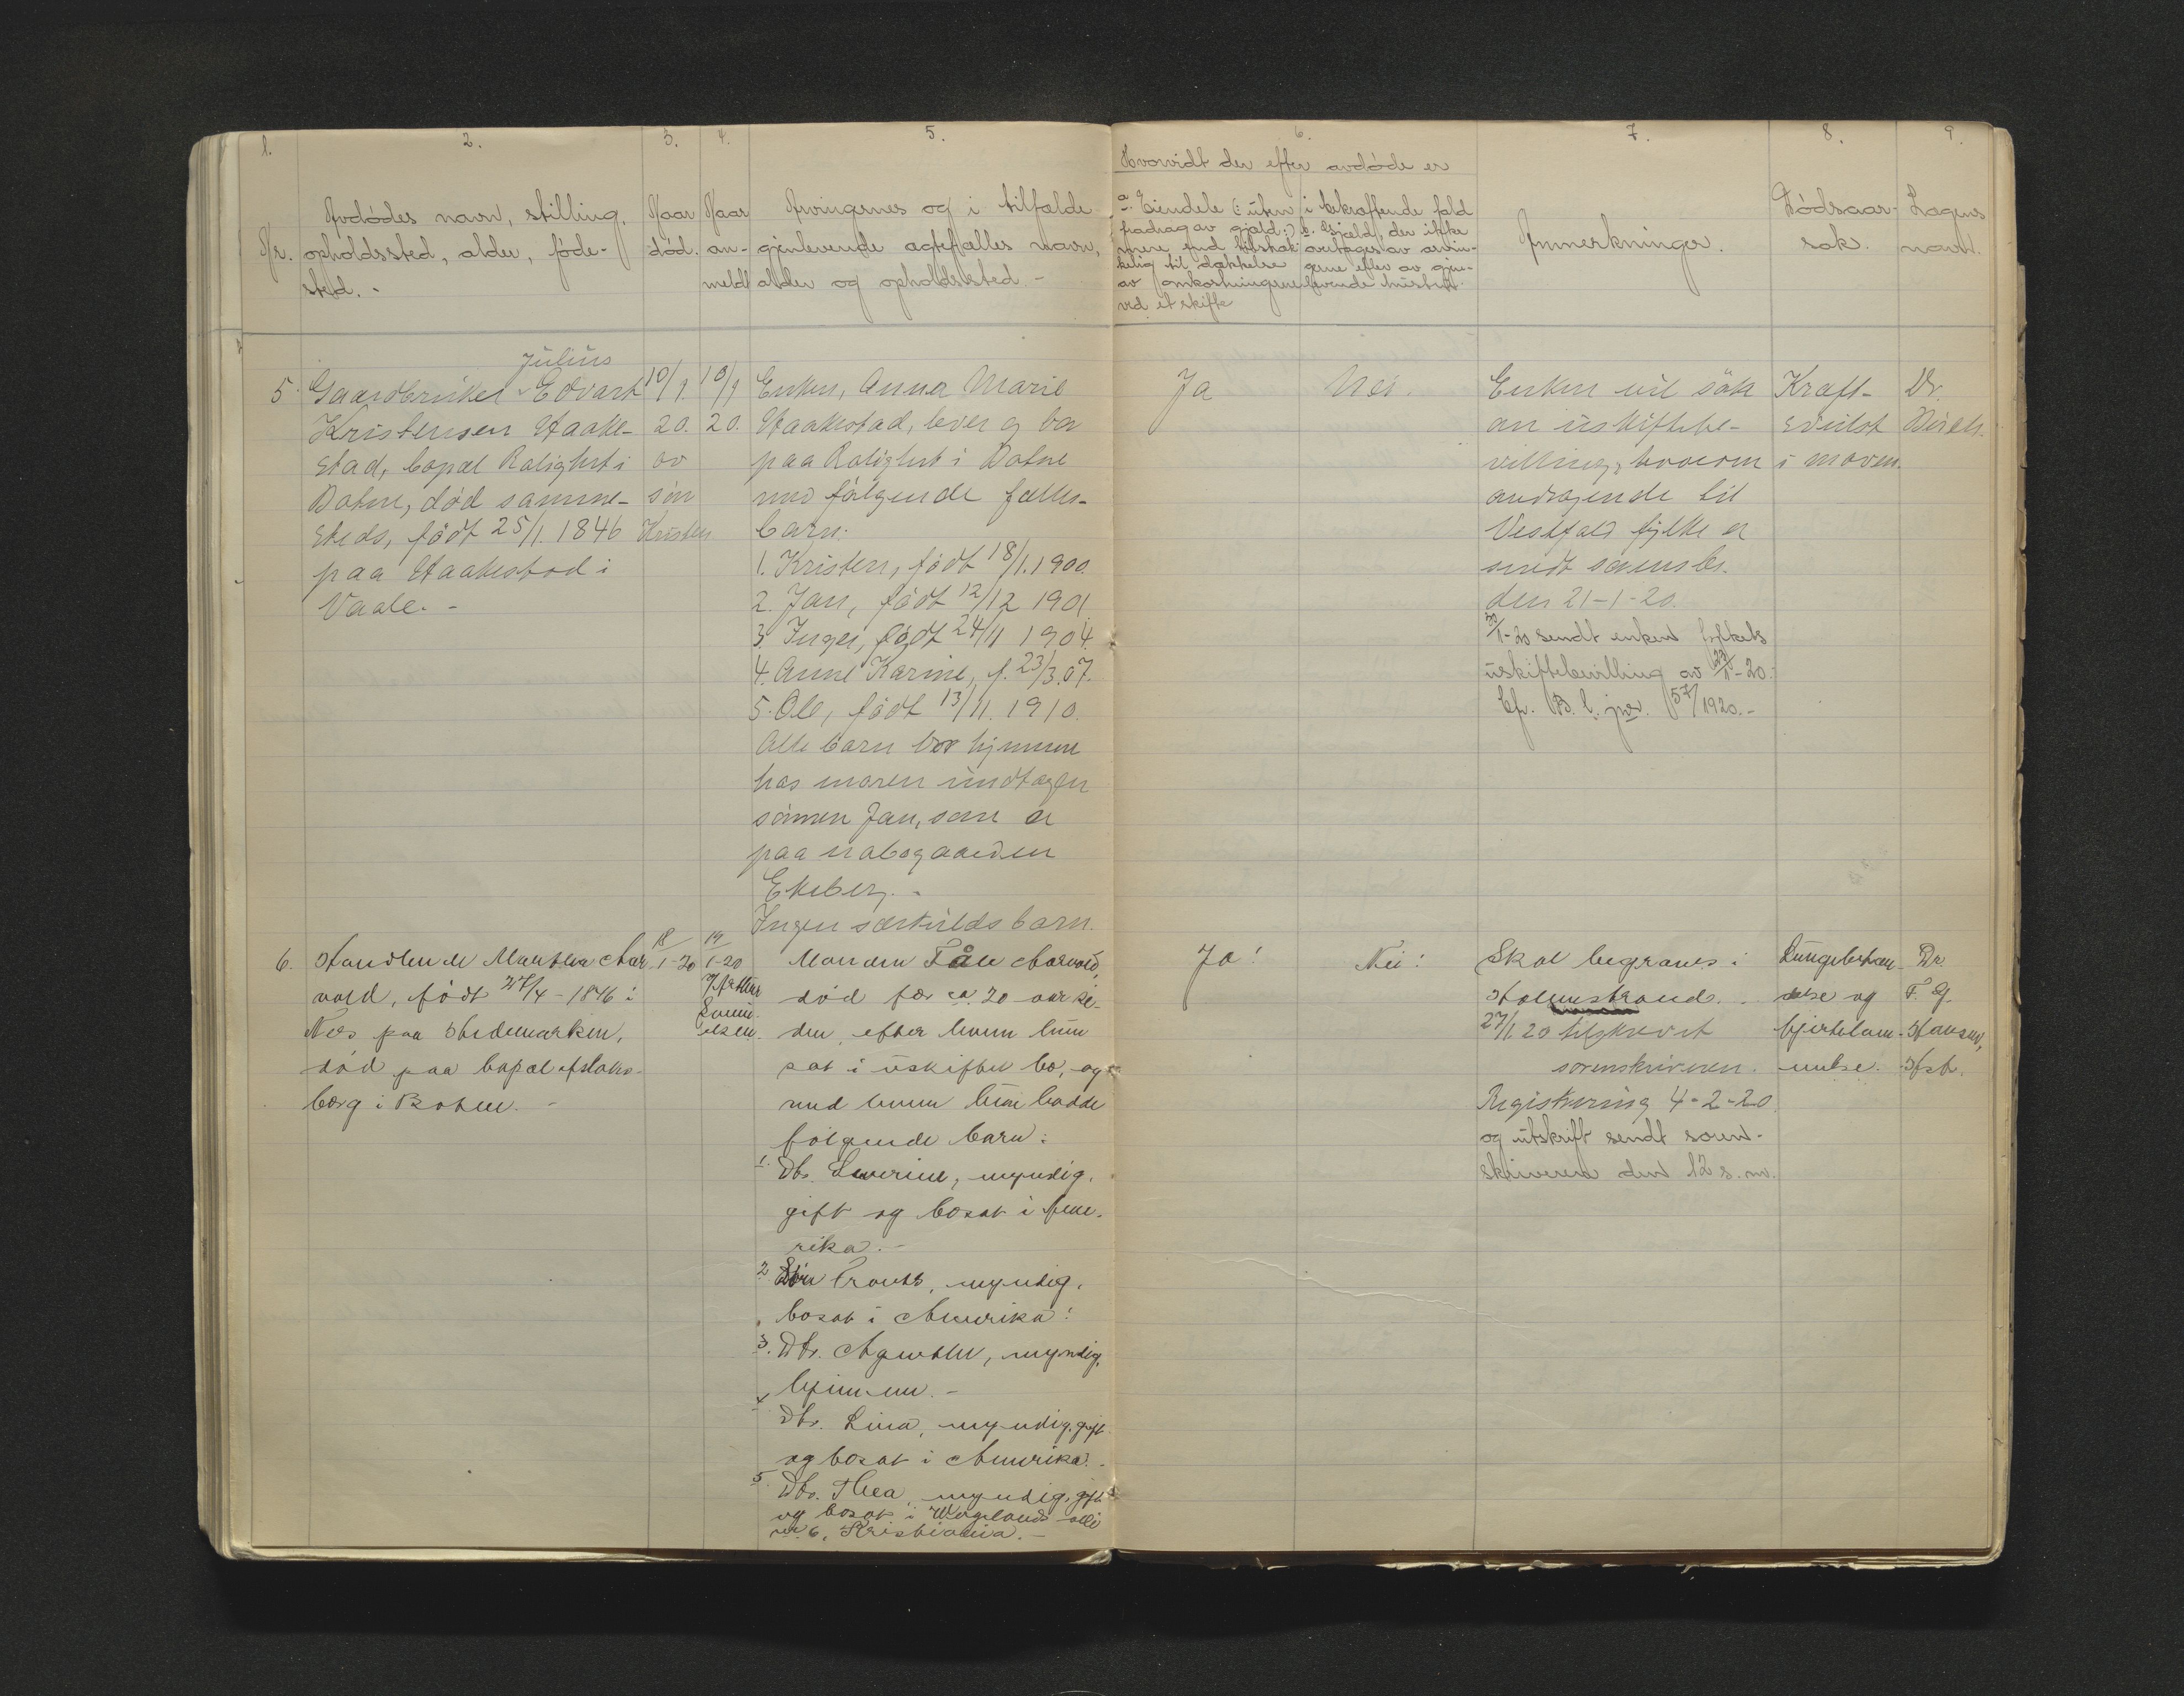 1. 2. 3. 4. 5. 6. 7. 8. 9.
Nr.
Avdødes navn, stilling,
opholdssted, alder, føde-
sted. -
Naar
død.
Naar
an-
meldt
Arvingernes og i tilfælde
gjenlevende ægtefælles navn,
alder og opholdssted -
Hvorvidt der efter avdøde er
a. Eiendele (: uten
fradrag av gjæld :)
mere end tilstræk-
kelig til dækkelse
av omkostningene
ved et skifte
i bekræftende fald
b. Gjæld, der ikke
overtages av arvin-
gerne eller av gjen-
levende
Anmerkninger.
Dødsaar-
sak.
Lægens
navn.
5.
Julius
Gaardbruker Edvart
Kristensen Haake-
stad, bopæl Rolighet i
Botne, død samme-
steds, født 25/1. 1846
paa Haakestad i
Vaale. -
10/1.
20.
10/1
20.
av
søn
Kristen
Enken, Anna Marie
Haakestad, lever og bor
paa Rolighet i Botne
med følgende fælles-
barn:
1. Kristen, født 18/1. 1900.
2. Jan, født 12/12 1901
3. Inger, født 24/11 1904.
4. Anne Karine, f. 23/3.07.
5. Ole, født 13/11. 1910.
Alle barn bor hjemme
hos moren undtagen
sønnen Jan, som er
paa nabogaarden
Ekeberg. -
Ingen særkuldsbarn.
Ja
Nei.
Enken vil søke
om uskiftebe-
villing, hvorom
andragende til
Vestfold fylke er
sendt
den 21-1-20.
30/1-20 sendt enken fylkets
uskiftebevilling av 23/1-20.
Cfr. B. l. jnr. 57/1920. -
Kræft-
svulst
i maven.
Dr.
6.
Handlende Marthea Aar-
vold, født 27/4-1846 i
Nes paa Hedemarken,
død paa bopæl
berg i Botne. -
18/1-20
19/1-20
Manden Tåle Aarvold,
død for ca. 20 aar si-
den, efter hvem hun
sat i uskiftet bo, og
med hvem hun hadde
følgende barn:
1. Dtr. Severine, myndig,
gift og bosat i Ame-
rika. -
2. Søn myndig,
bosat i Amerika!
3. Dtr. Agnethe, myndig,
hjemme. -
4. Dtr. Lina, myndig, gift
og bosat i Amerika.
5. Dtr. Thea, myndig, gift
og bosat i Wergelands alle
nr. 6, Kristiania. -
Ja!
Nei!
Skal begraves i
Holmestrand.
27/1.20 tilskrevet
sorenskriveren.
Registrering 4-2-20
og utskrift sendt soren-
skriveren den 12 s. m.
Lungebetæn-
delse og
hjertelam-
melse.
Dr.
F. G.
Hansen,
Hst.